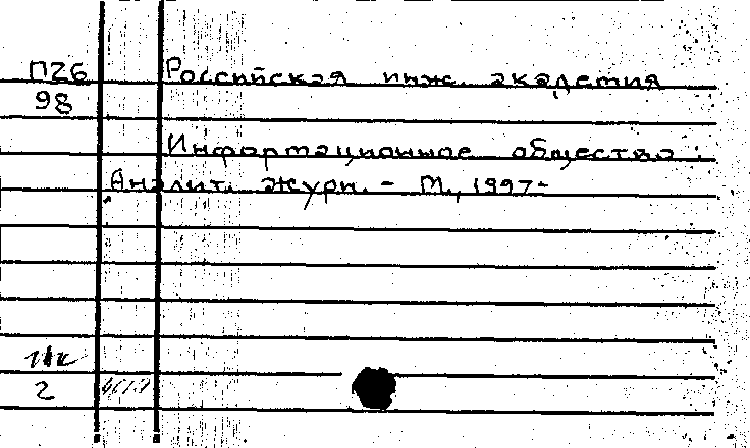 П26 Российская инж. академия
98
Информационное общество :
Аналит. журн. - М., 1997-
2